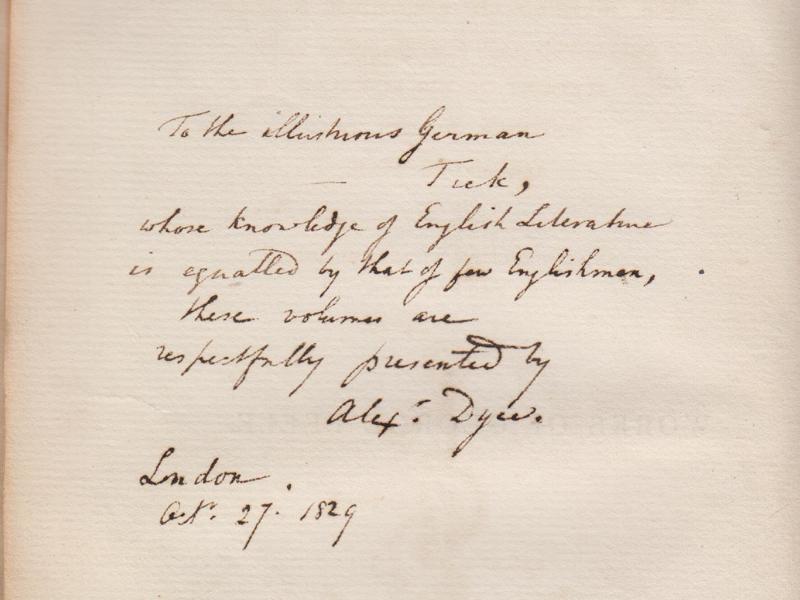 To the illustrious German
Tieck,
whose knowledge of English Literature
is equalled by that of few Englishmen,
these volumes are
respectfully presented by
Alexr. Dyce.
London.
Octr. 27. 1829